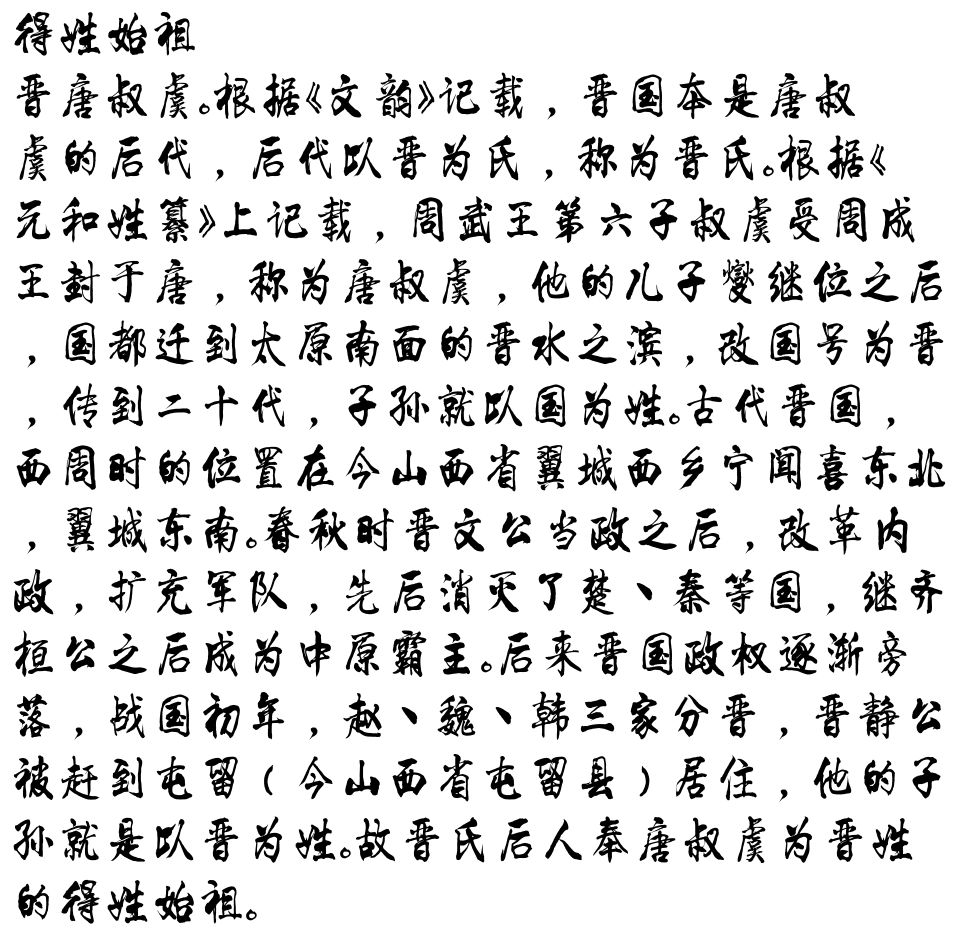 得姓始祖
晋唐叔虞。根据《文韵》记载，晋国本是唐叔
虞的后代，后代以晋为氏，称为晋氏。根据《
元和姓纂》上记载，周武王第六子叔虞受周成
王封于唐，称为唐叔虞，他的儿子燮继位之后
，国都迁到太原南面的晋水之滨，改国号为晋
，传到二十代，子孙就以国为姓。古代晋国，
西周时的位置在今山西省翼城西乡宁闻喜东北
，翼城东南。春秋时晋文公当政之后，改革内
政，扩充军队，先后消灭了楚丶秦等国，继齐
桓公之后成为中原霸主。后来晋国政权逐渐旁
落，战国初年，赵丶魏丶韩三家分晋，晋静公
被赶到屯留（今山西省屯留县）居住，他的子
孙就是以晋为姓。故晋氏后人奉唐叔虞为晋姓
的得姓始祖。